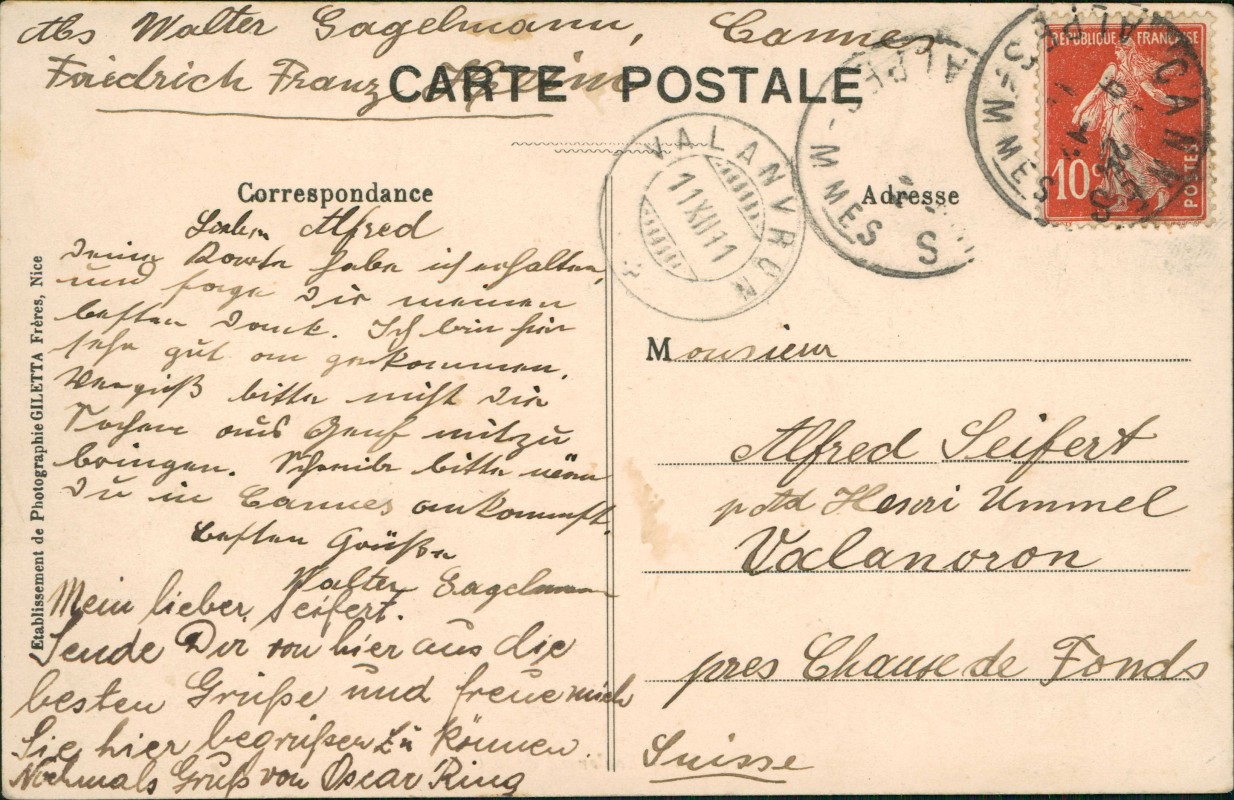 Abs Walter Gagelmann, Cannes
Friedrich Franz Heim
CARTE POSTALE
RÉPUBLIQUE FRANÇAISE
10c
POSTES
CANNES
ALPES-MMES
VALANVRON
11 XII 11
ALPES-MMES
Correspondance
Adresse
Lieber Alfred
Deine Karte habe ich erhalten
und sage Dir meinen
besten Dank. Ich bin hier
sehr gut angekommen.
Vergiß bitte nicht die
Sachen aus Genf mitzu
bringen. Schreibe bitte wann
Du in Cannes ankommst.
besten Grüße
Walter Gagelmann
Mein lieber Seifert.
Sende Dir von hier aus die
besten Grüße und freue mich
Sie hier begrüßen zu können.
Nochmals Gruß von Oscar Ring
Monsieur
Alfred Seifert
Henri Ummel
Valanvron
pres Chaux de Fonds
Suisse
Etablissement de Photographie GILETTA Frères, Nice